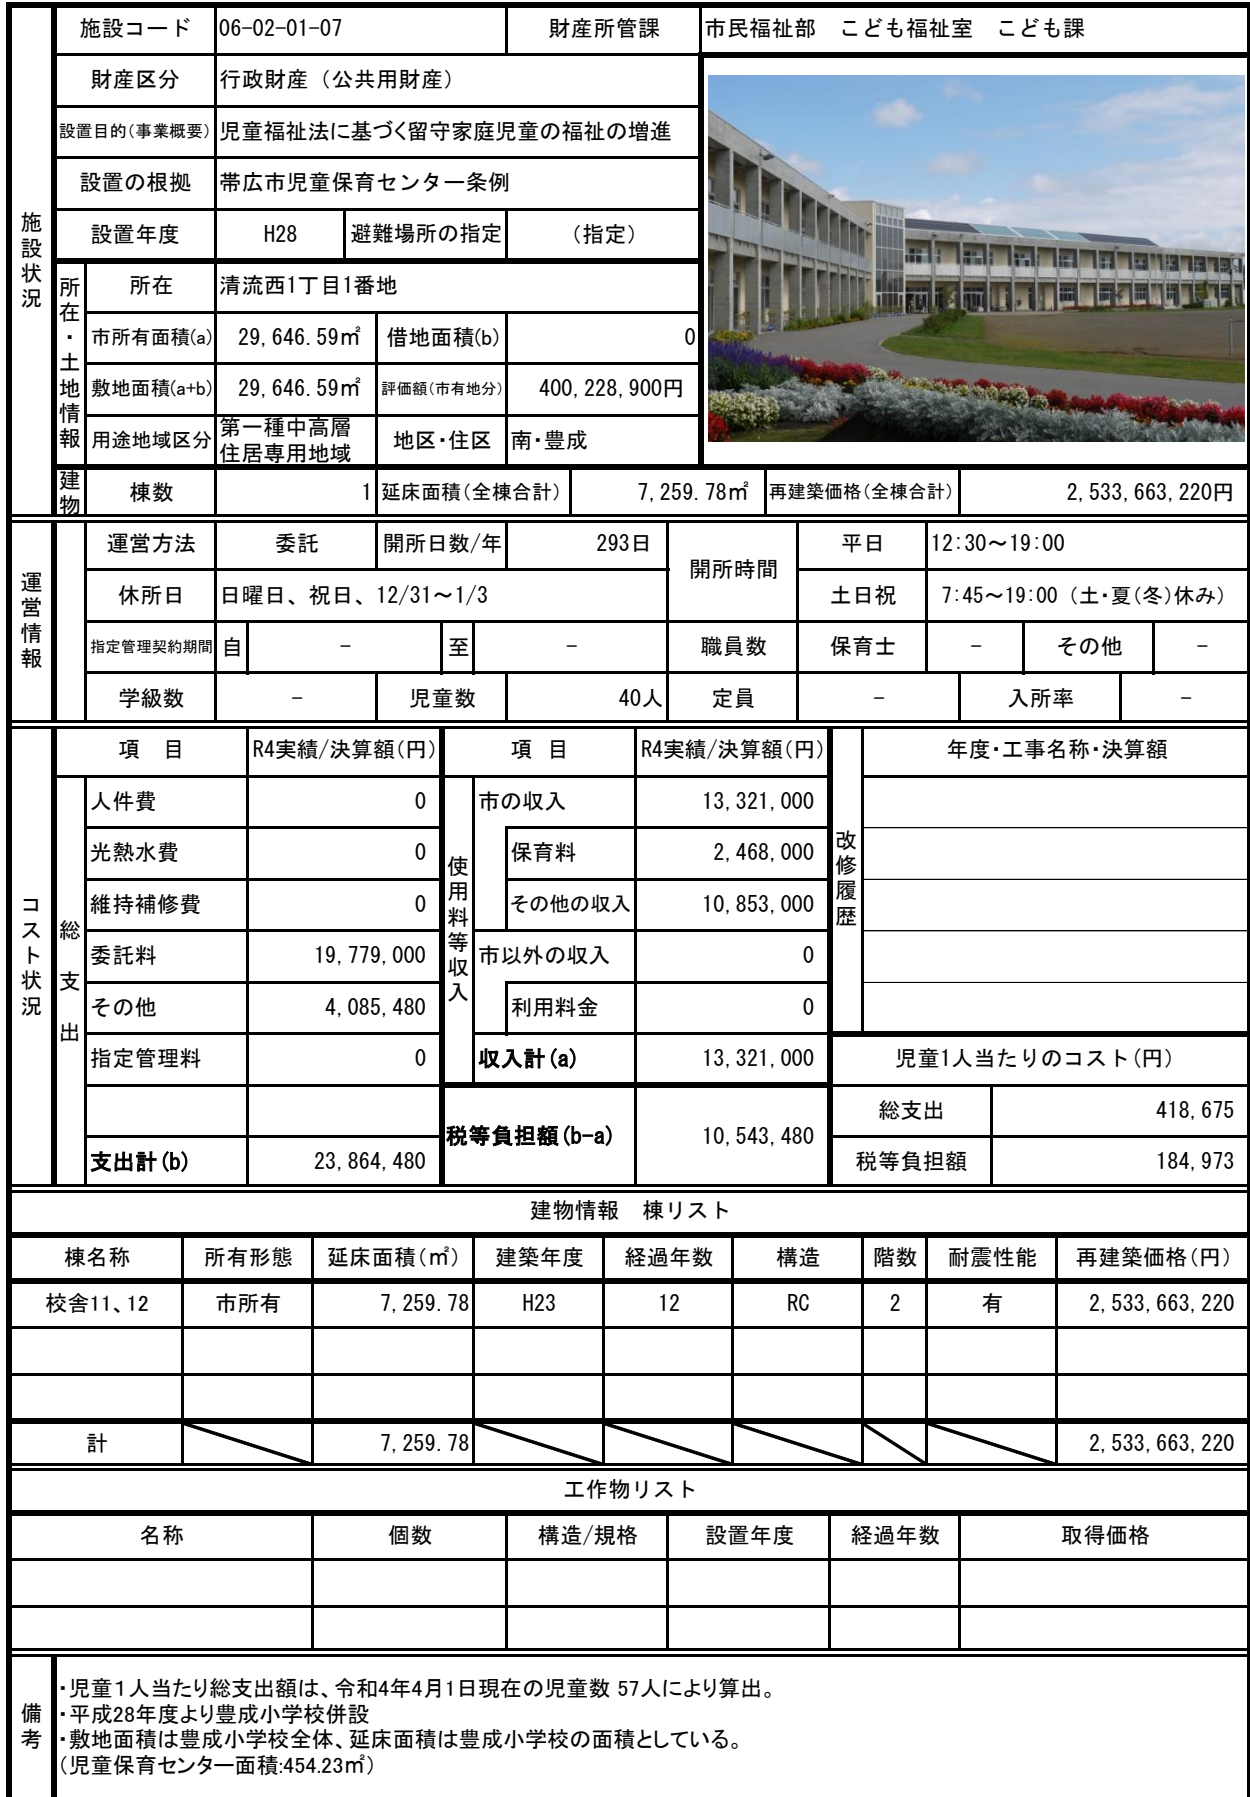 施設状況
施設コード 06-02-01-07 財産所管課 市民福祉部 こども福祉室 こども課
財産区分 行政財産（公共用財産）
設置目的(事業概要) 児童福祉法に基づく留守家庭児童の福祉の増進
設置の根拠 帯広市児童保育センター条例
設置年度 H28 避難場所の指定 （指定）
所在・土地情報
所在 清流西1丁目1番地
市所有面積(a) 29,646.59㎡ 借地面積(b) 0
敷地面積(a+b) 29,646.59㎡ 評価額(市有地分) 400,228,900円
用途地域区分 第一種中高層
住居専用地域 地区・住区 南・豊成
建物
棟数 1 延床面積(全棟合計) 7,259.78㎡ 再建築価格(全棟合計) 2,533,663,220円
運営情報
運営方法 委託 開所日数/年 293日 開所時間 平日 12:30～19:00
休所日 日曜日、祝日、12/31～1/3 土日祝 7:45～19:00（土・夏(冬)休み）
指定管理契約期間 自 － 至 － 職員数 保育士 － その他 －
学級数 － 児童数 40人 定員 － 入所率 －
コスト状況
項　目 R4実績/決算額(円) 項　目 R4実績/決算額(円) 改修履歴 年度・工事名称・決算額
総支出 使用料等収入
人件費 0 市の収入 13,321,000
光熱水費 0 保育料 2,468,000
維持補修費 0 その他の収入 10,853,000
委託料 19,779,000 市以外の収入 0
その他 4,085,480 利用料金 0
指定管理料 0 収入計(a) 13,321,000 児童1人当たりのコスト(円)
税等負担額(b-a) 10,543,480 総支出 418,675
支出計(b) 23,864,480 税等負担額 184,973
建物情報　棟リスト
棟名称 所有形態 延床面積(㎡) 建築年度 経過年数 構造 階数 耐震性能 再建築価格(円)
校舎11、12 市所有 7,259.78 H23 12 RC 2 有 2,533,663,220
計 7,259.78 2,533,663,220
工作物リスト
名称 個数 構造/規格 設置年度 経過年数 取得価格
備考
・児童１人当たり総支出額は、令和4年4月1日現在の児童数 57人により算出。
・平成28年度より豊成小学校併設
・敷地面積は豊成小学校全体、延床面積は豊成小学校の面積としている。
（児童保育センター面積:454.23㎡）